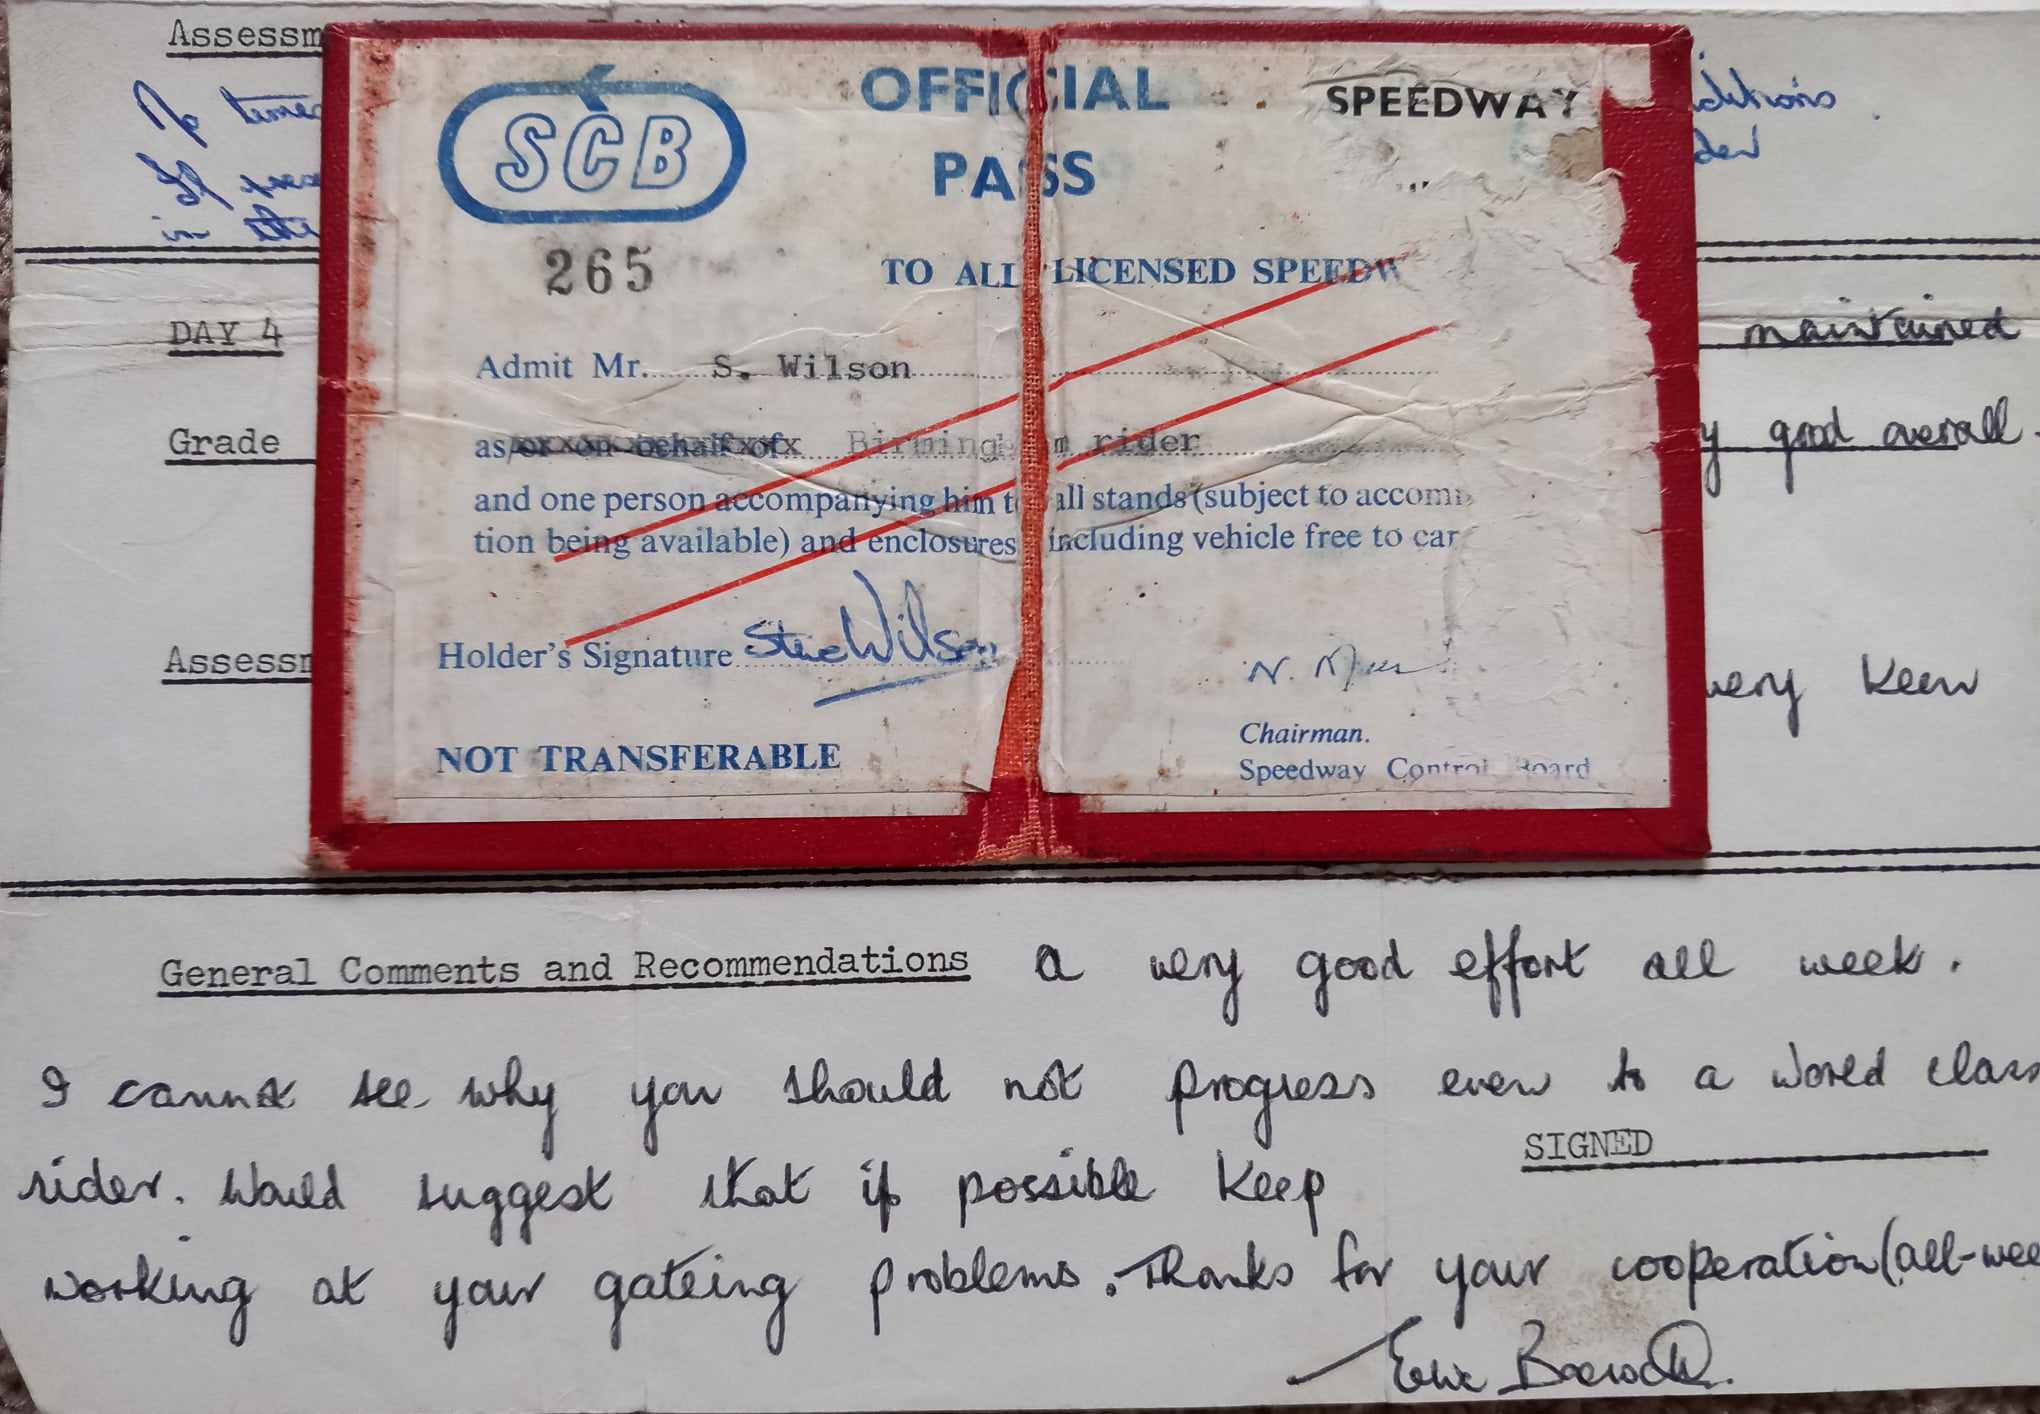 Assessm
To times
ditions.
in the
DAY 4
maintained
Grade
y good overall.
Assessm
very keen
SCB
OFFICIAL
PASS
SPEEDWAY
265
TO ALL LICENSED SPEEDW
Admit Mr. S. Wilson
as/or on behalf of Birmingham rider
and one person accompanying him to all stands (subject to accomm
tion being available) and enclosures including vehicle free to car
Holder's Signature Steve Wilson
NOT TRANSFERABLE
Chairman.
Speedway Control Board
General Comments and Recommendations a very good effort all week.
I cannot see why you should not progress even to a world class
rider. Would suggest that if possible keep
SIGNED
working at your gateing problems. Thanks for your cooperation (all-wee
Eric Boocock.